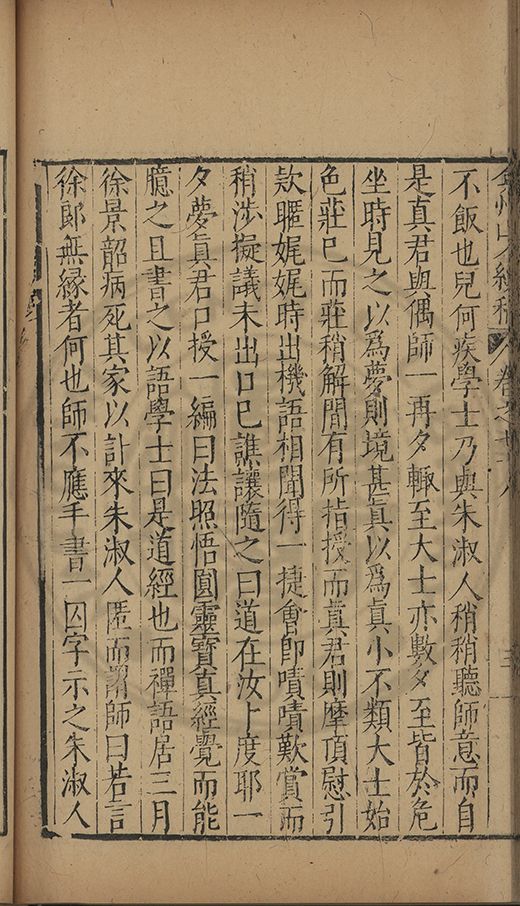 不飯也兒何疾學士乃與朱淑人稍稍聽師意而自
是真君與偶師一再夕輙至大士亦數夕至皆於危
坐時見之以爲夢則境甚真以爲真小不類大士始
色莊巳而莊稍解間有所指授而真君則摩頂慰引
款暱娓娓時出機語相聞得一捷會卽嘖嘖歎賞而
稍涉擬議未出口巳譙讓隨之曰道在汝卜度耶一
夕夢眞君口授一編曰法照悟圓靈寶真經覺而能
臆之且書之以語學士曰是道經也而禪語居三月
徐景韶病死其家以訃來朱淑人匿而謂師曰若言
徐郎無緣者何也師不應手書一囚字示之朱淑人